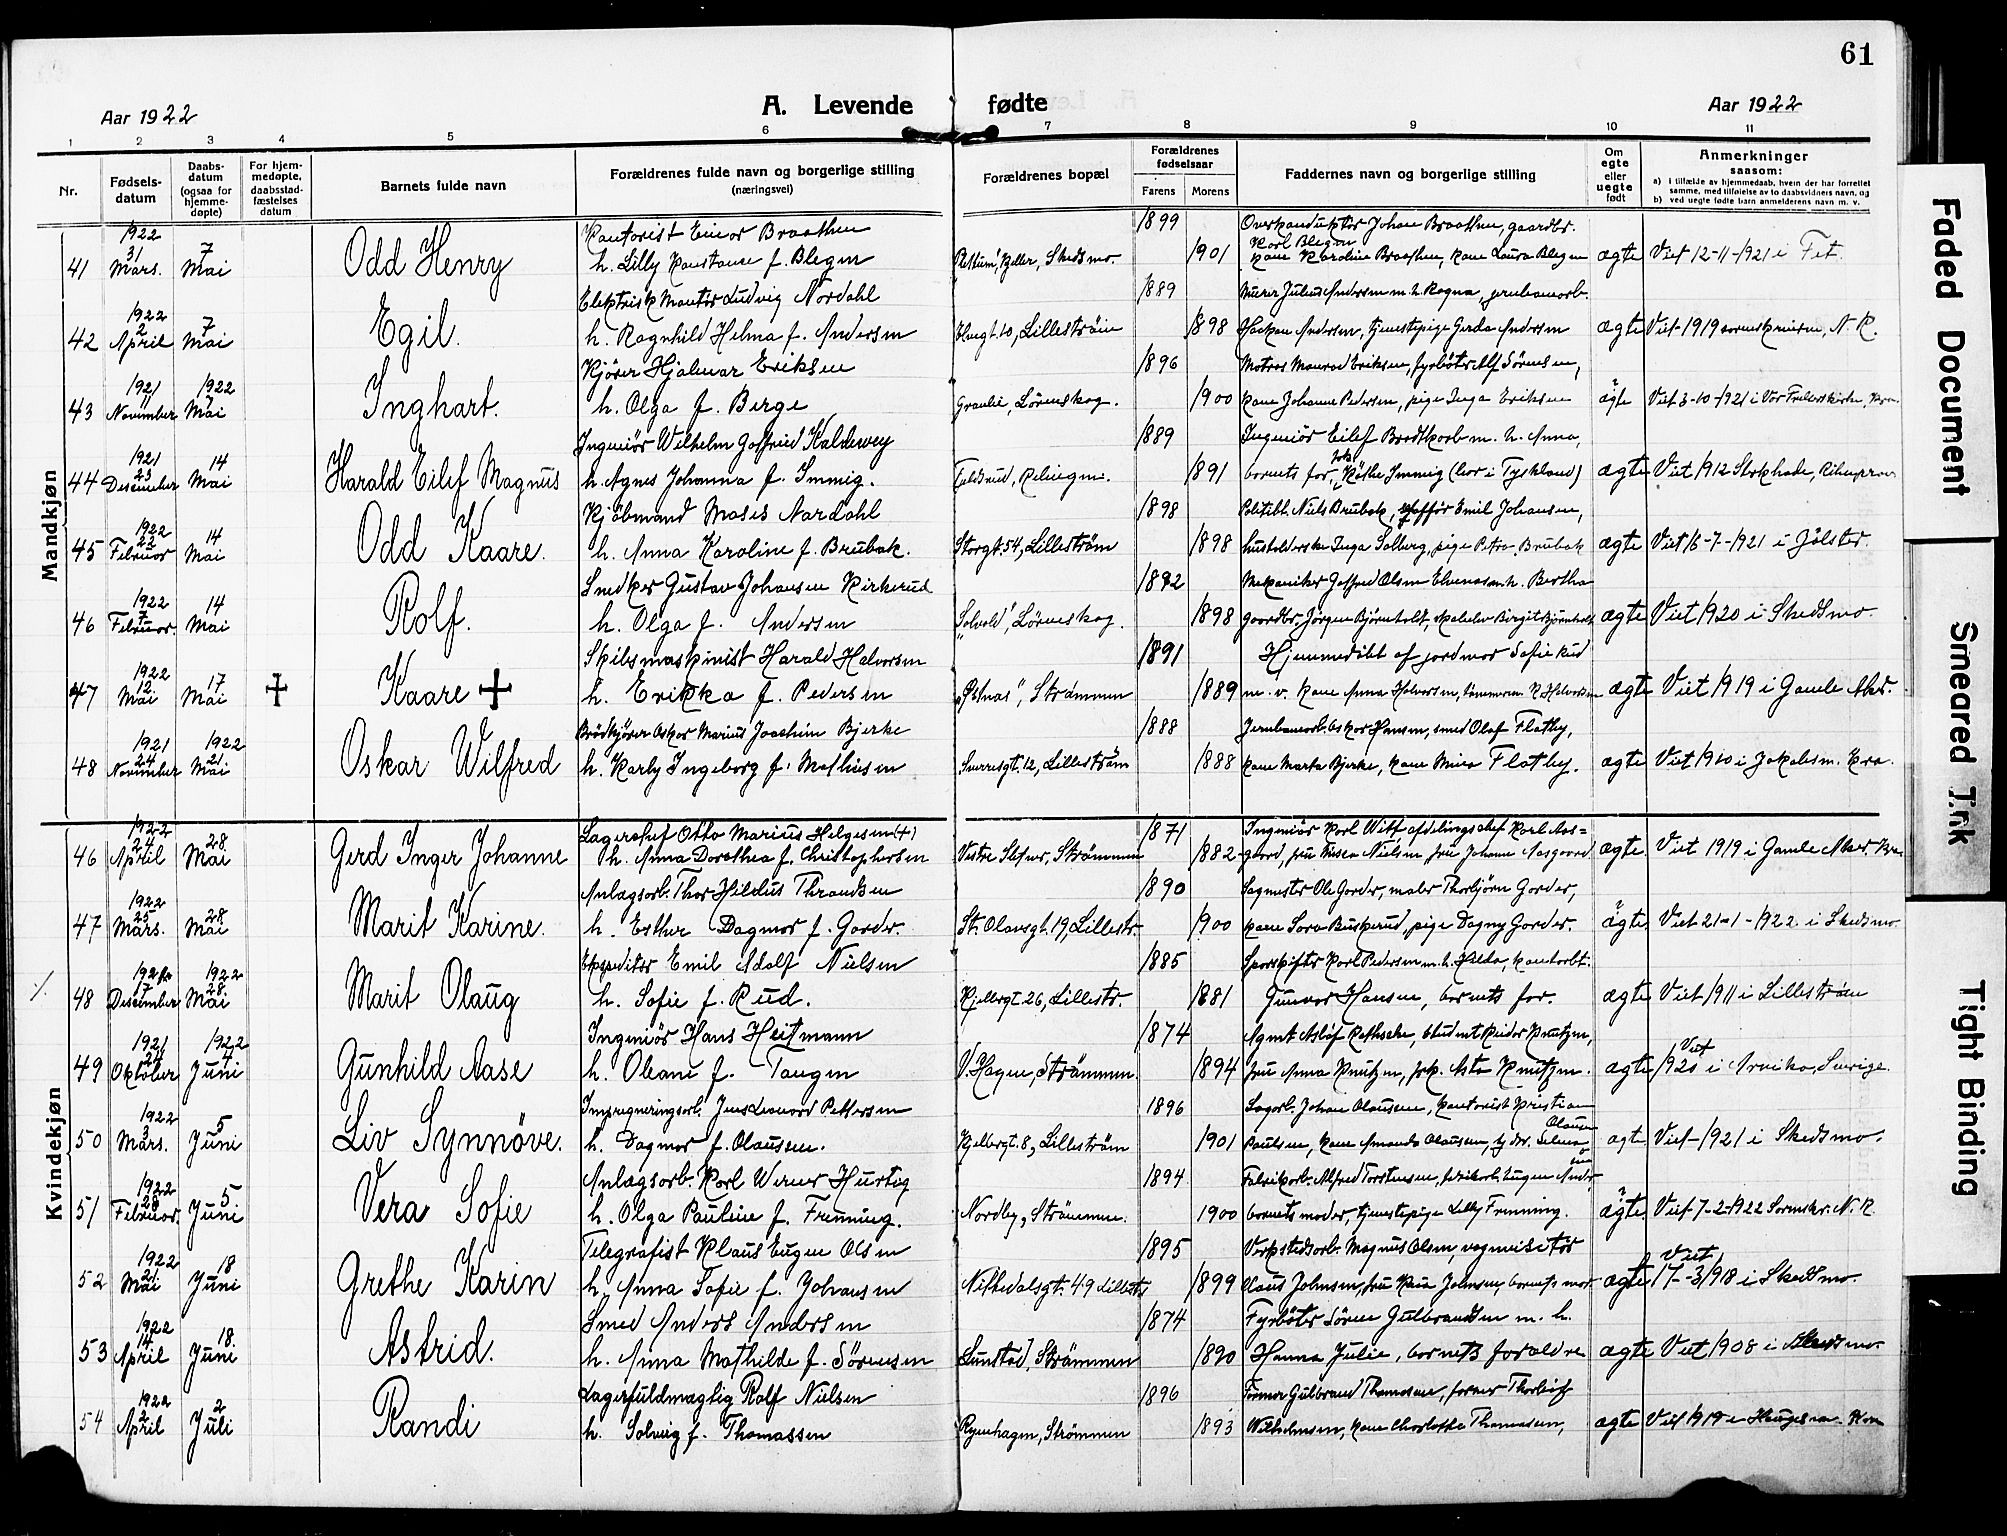 61
Aar 1922
A. Levende fødte
Aar 1922
1 2 3 4 5 6 7 8 9 10 11
Nr.
Fødsels-datum
Daabs-datum (ogsaa for hjemme-døpte)
For hjem-medøpte, daabsstad-fæstelses datum
Barnets fulde navn
Forældrenes fulde navn og borgerlige stilling (næringsvei)
Forældrenes bopæl
Forældrenes fødselsaar
Farens Morens
Faddernes navn og borgerlige stilling
Om egte eller uegte født
Anmerkninger saasom:
a) I tilfælde av hjemmedaab, hvem der har forrettet samme, med tilføielse av to daabsvidners navn, og
b) ved uegte fødte barn anmelderens navn m. v.
Mandkjøn
1922 Kontorist Einar Braathen 1899 Overkonduktør Johan Braathen, gaardbr.
Karl Blegen
41 31 Mars. 7 Mai Odd Henry h. Lilly Konstanse f. Blegen Kjeller, Skedsmo. 1901 kone Karoline Braathen, kone Laura Blegen ægte Viet 12-11-1921 i Fet.
Elektrisk Montør Ludvig Nordahl 1889 Murer Julius Andersen m. h. Ragna, jernbanearb.
42 1922 2 April 7 Mai Egil. h. Ragnhild Helma f. Andersen 10, Lillestrøm 1898 Haakon Andersen, tjenestepige Gerda Andersen ægte Viet 1919 sorenskriveren, N. R.
Kjører Hjalmar Eriksen 1896 Matros Eriksen, fyrbøter Alf Sørensen,
43 1921 11 November 1922 7 Mai Inghart. h. Olga f. Berge Granlie, Lørenskog. 1900 kone Johanne Pedersen, pige Inga Eriksen ægte Viet 3-10-1921 i Vor Frelserskirke,
Ingeniør Wilhelm Gottfried Kaldewey 1889 Ingeniør Eilef Brodtkorb m. h. Anna,
44 1921 23 Desember 14 Mai Harald Eilef Magnus h. Agnes Johanna f. Immig. 1891 barnets far, frk. Käthe Immig (bor i Tyskland) ægte Viet 1912
Kjøbmand Moses Nordahl 1898 Politibtj. Niels Brubak, Emil Johansen,
45 1922 22 Februar 14 Mai Odd Kaare. h. Anna Karoline f. Brubak. Storgt. 54, Lillestrøm 1898 husholderske Inga Solberg, pige Petra Brubak ægte Viet 16-7-1921 i Jølster.
Snedker Gustav Johansen Kirkerud 1892 Mekaniker Gotfred Olsen m. h. Bertha
46 1922 7 Februar. 14 Mai Rolf. h. Olga f. Andersen "Solvold", Lørenskog. 1898 gaardbr. Jørgen Bjørnholt, Birgit Bjørnholt ægte Viet 1920 i Skedsmo.
Skibsmaskinist Harald Halvorsen 1891 Hjemmedøbt af jordmor Sofie Lid
47 1922 12 Mai 17 Mai + Kaare + h. Erikka f. Pedersen "Østnas", Strømmen 1889 m. v. kone Anna Halvorsen, tømmerm. K Halvorsen ægte Viet 1919 i Gamle Aker.
Brødkjører Oskar Marius Joachim Bjerke 1888 Jernbanearb. Oskar Hansen, smed Olaf Flatby,
48 1921 24 November 1922 21 Mai Oskar Wilfred h. Karly Ingeborg f. Mathisen Sverresgt. 12, Lillestrøm 1888 kone Marta Bjerke, kone Flatby. ægte Viet 1910 i Jakobsm. Kra.
Kvindekjøn
Lagerchef Otto Marius Helgesen (+) 1871 Ingeniør Karl Witt afdelingschef Karl Aas=
46 1922 24 April 28 Mai Gerd Inger Johanne h. Anna Dorothea f. Christophersen Vestre , Strømmen 1882 gaard, fru Nielsen, fru Johanne Aasgaard ægte Viet 1919 i Gamle Aker.
Anlægsarb. Thor Hildus Thrandsen 1890 Sagmester Ole Gorder, maler Thorbjørn Gorder,
47 1922 25 Mars. 28 Mai Marit Karine. h. Esther Dagmar f. Gorder. St. Olavsgt. 19, Lillestr. 1900 kone Sara Buskerud, pige Dagny Gorder. ægte Viet 21-1-1922 i Skedsmo
Ekspeditør Emil Adolf Nielsen 1885 Sporskifter Karl Pedersen m. h. Hilda, kontorbt.
./. 48 17 Desember 1922 28 Mai Marit Olaug h. Sofie f. Rud. Kjellergt. 26, Lillestr. 1881 Gunvor Hansen, barnets far. ægte Viet 1911 i Lillestrøm
Ingeniør Hans Heitmann 1874 Agent Asløf , student Reidar Knutzen,
49 1921 24 Oktober 1922 4 Juni Gunhild Aase h. Oleane f. Tangen V. Hagen, Strømmen. 1894 fru Anna Knutzen, frk. Asta Knutzen. ægte Viet 1920 i Arvika, Sverige.
Impregneringsarb. Jens Leonard Pettersen 1896 Sagarb. Johan Olaussen, kontorist Kristian
Olaussen
50 1922 3 Mars. 5 Juni Liv Synnöve. h. Dagmar f. Olaussen. Kjellergt. 8, Lillestrøm 1901 Paulsen, kone Amanda Olaussen, Selma ægte Viet 1921 i Skedsmo.
Anlægsarb. Karl Werner Hurtig 1894 Fabrikarb. Alfred Torstensen, fabrikarb. Eugen Anders
51 1922 28 Februar. 5 Juni Vera Sofie h. Olga Pauline f. Frenning. Nordby, Strømmen. 1900 barnets moder, tjenestepige Lilly Frenning. ægte. Viet 7-2-1922 Sorenskr. N. R.
Telegrafist Klaus Eugen Olsen 1895 Verkstedsarb. Magnus Olsen, vognvisitør
52 1922 21 Mai 18 Juni Grethe Karin h. Anna Sofie f. Johansen Nittedalsgt. 49 Lillestr. 1899 Claus Johnsen, fru Johnsen, barnets mor ægte Viet 17-3/1918 i Skedsmo.
Smed Anders Andersen 1874 Fyrbøter Søren Gulbrandsen m. h.
53 1922 14 April 18. Juni Astrid. h. Anna Mathilde f. Sørensen Lunstad, Strømmen 1890 Hanna Julie, barnets forældre ægte Viet 1908 i Skedsmo.
Lagerfuldmægtig Rolf Nielsen 1896 Former Gulbrand Thomassen, former Thorleif
54 1922 2 April 2 Juli Randi h. Solveig f. Thomassen Ryenhagen, Strømmen 1893 Wilhelmsen, kone Charlotte Thomassen, ægte Viet 1919 i
Faded Document
Smeared Ink
Tight Binding